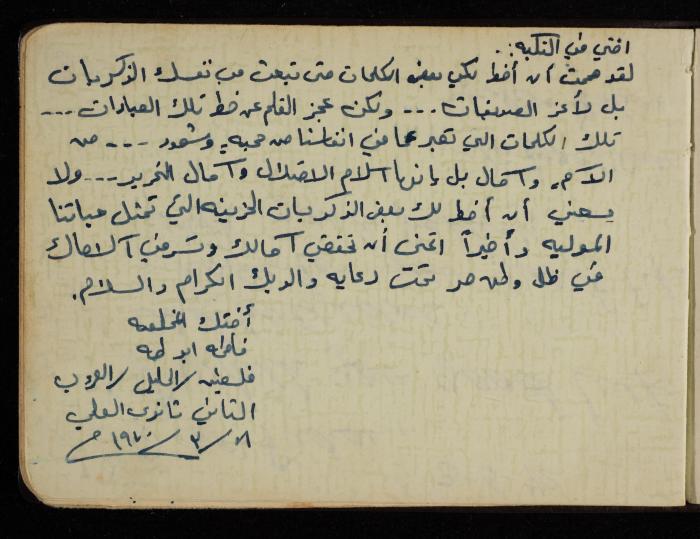 اختي في النكبه..
لقد هممت أن أخط لكي بعض الكلمات حتى تبعث في نفسك الذكريات
بل لأعز الصديقات... ولكن عجز القلم عن خط تلك العبارات ...
تلك الكلمات التي تعبر عما في انفاسنا من محبه وشعور --- من
آلام وآمال بل بانها آلام الاحتلال وآمال التحرير --- ولا
يسعني أن أخط لك بعض الذكريات الحزينه التي تمثل حياتنا
المواليه وأخيراً اتمنى أن تحققي آمالك وتسرمني آلامك
في ظل وطن حر تحت رعايه والديك الكرام والسلام.
أختك المخلصه
فاطمه ابو طه
فلسطين / الخليل / العروب
الثاني ثانوي العلمي
٨ / ٣ / ١٩٧٠ م